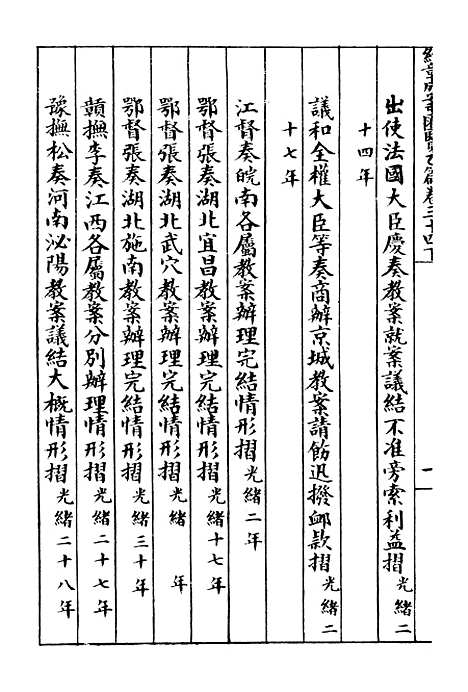 約章成案匯覽乙篇卷三十四下
一
出使法國大臣慶奏教案就案議結不准旁索利益摺光緒二
十四年
議和全權大臣等奏商辦京城教案請飭迅撥卹款摺光緒二
十七年
江督奏皖南各屬教案辦理完結情形摺光緒二年
鄂督張奏湖北宜昌教案辦理完結情形摺光緒十七年
鄂督張奏湖北武穴教案辦理完結情形摺光緒 年
鄂督張奏湖北施南教案辦理完結情形摺光緒三十年
贛撫李奏江西各屬教案分別辦理情形摺光緒二十七年
豫撫松奏河南泌陽教案議結大概情形摺光緒二十八年